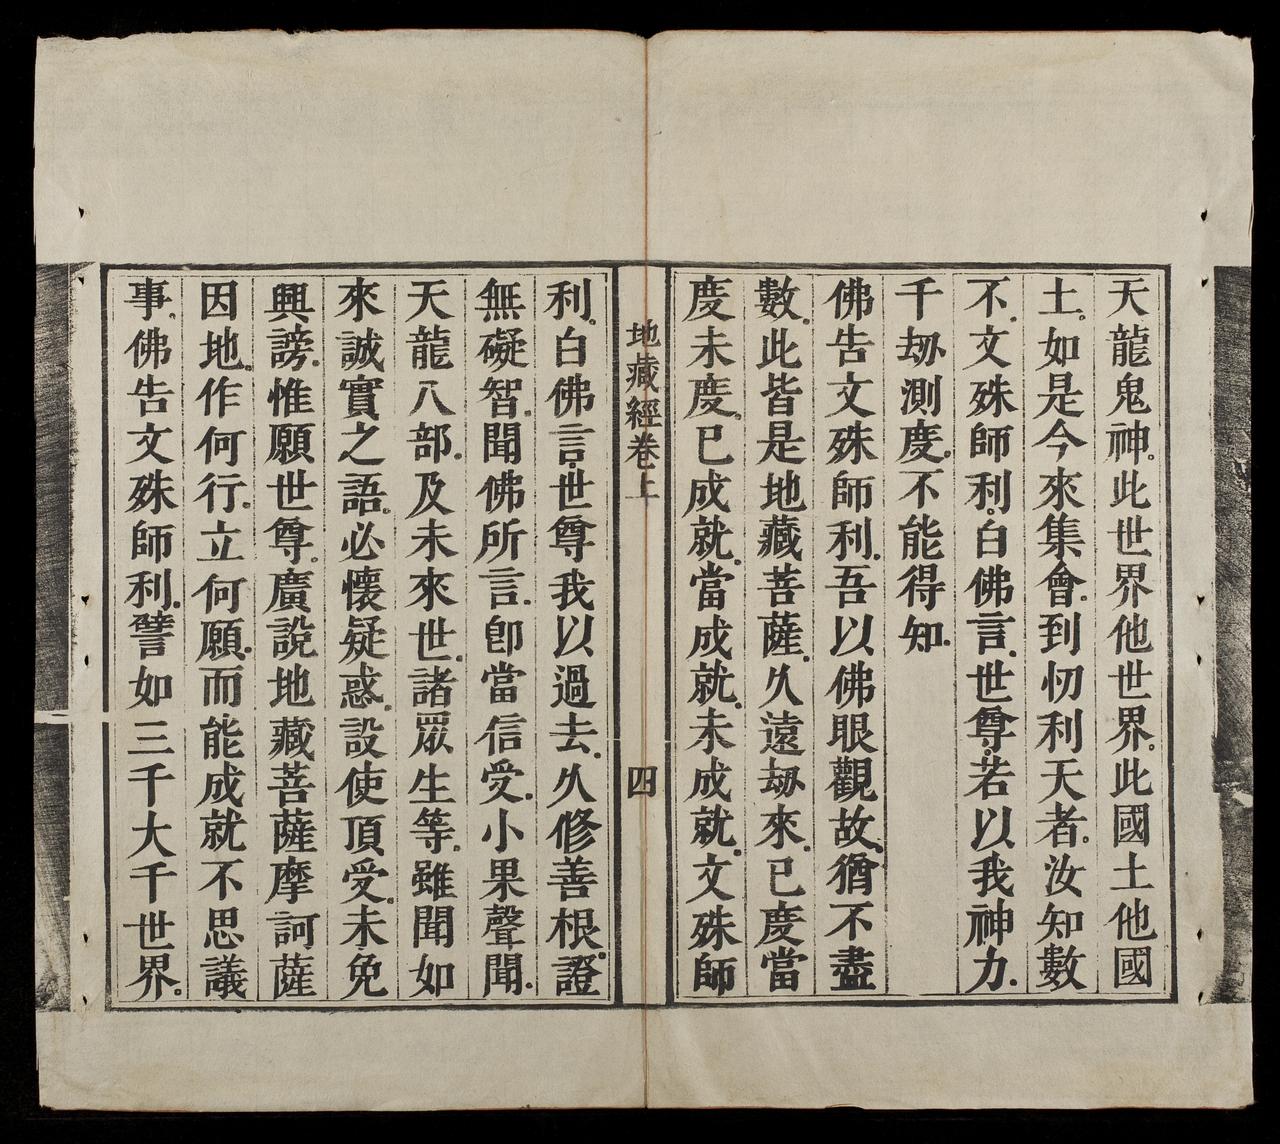 天龍鬼神。此世界他世界。此國土他國
土。如是今來集會。到忉利天者。汝知數
不。文殊師利。白佛言。世尊。若以我神力。
千劫測度。不能得知。
佛告文殊師利。吾以佛眼觀故。猶不盡
數。此皆是地藏菩薩。久遠劫來。已度當
度未度。已成就。當成就。未成就。文殊師
地藏經卷上
四
利。白佛言。世尊我以過去。久修善根。證
無礙智。聞佛所言。卽當信受。小果聲聞。
天龍八部。及未來世。諸眾生等。雖聞如
來誠實之語。必懷疑惑。設使頂受。未免
興謗。惟願世尊。廣說地藏菩薩摩訶薩
因地。作何行。立何願。而能成就不思議
事。佛告文殊師利。譬如三千大千世界。